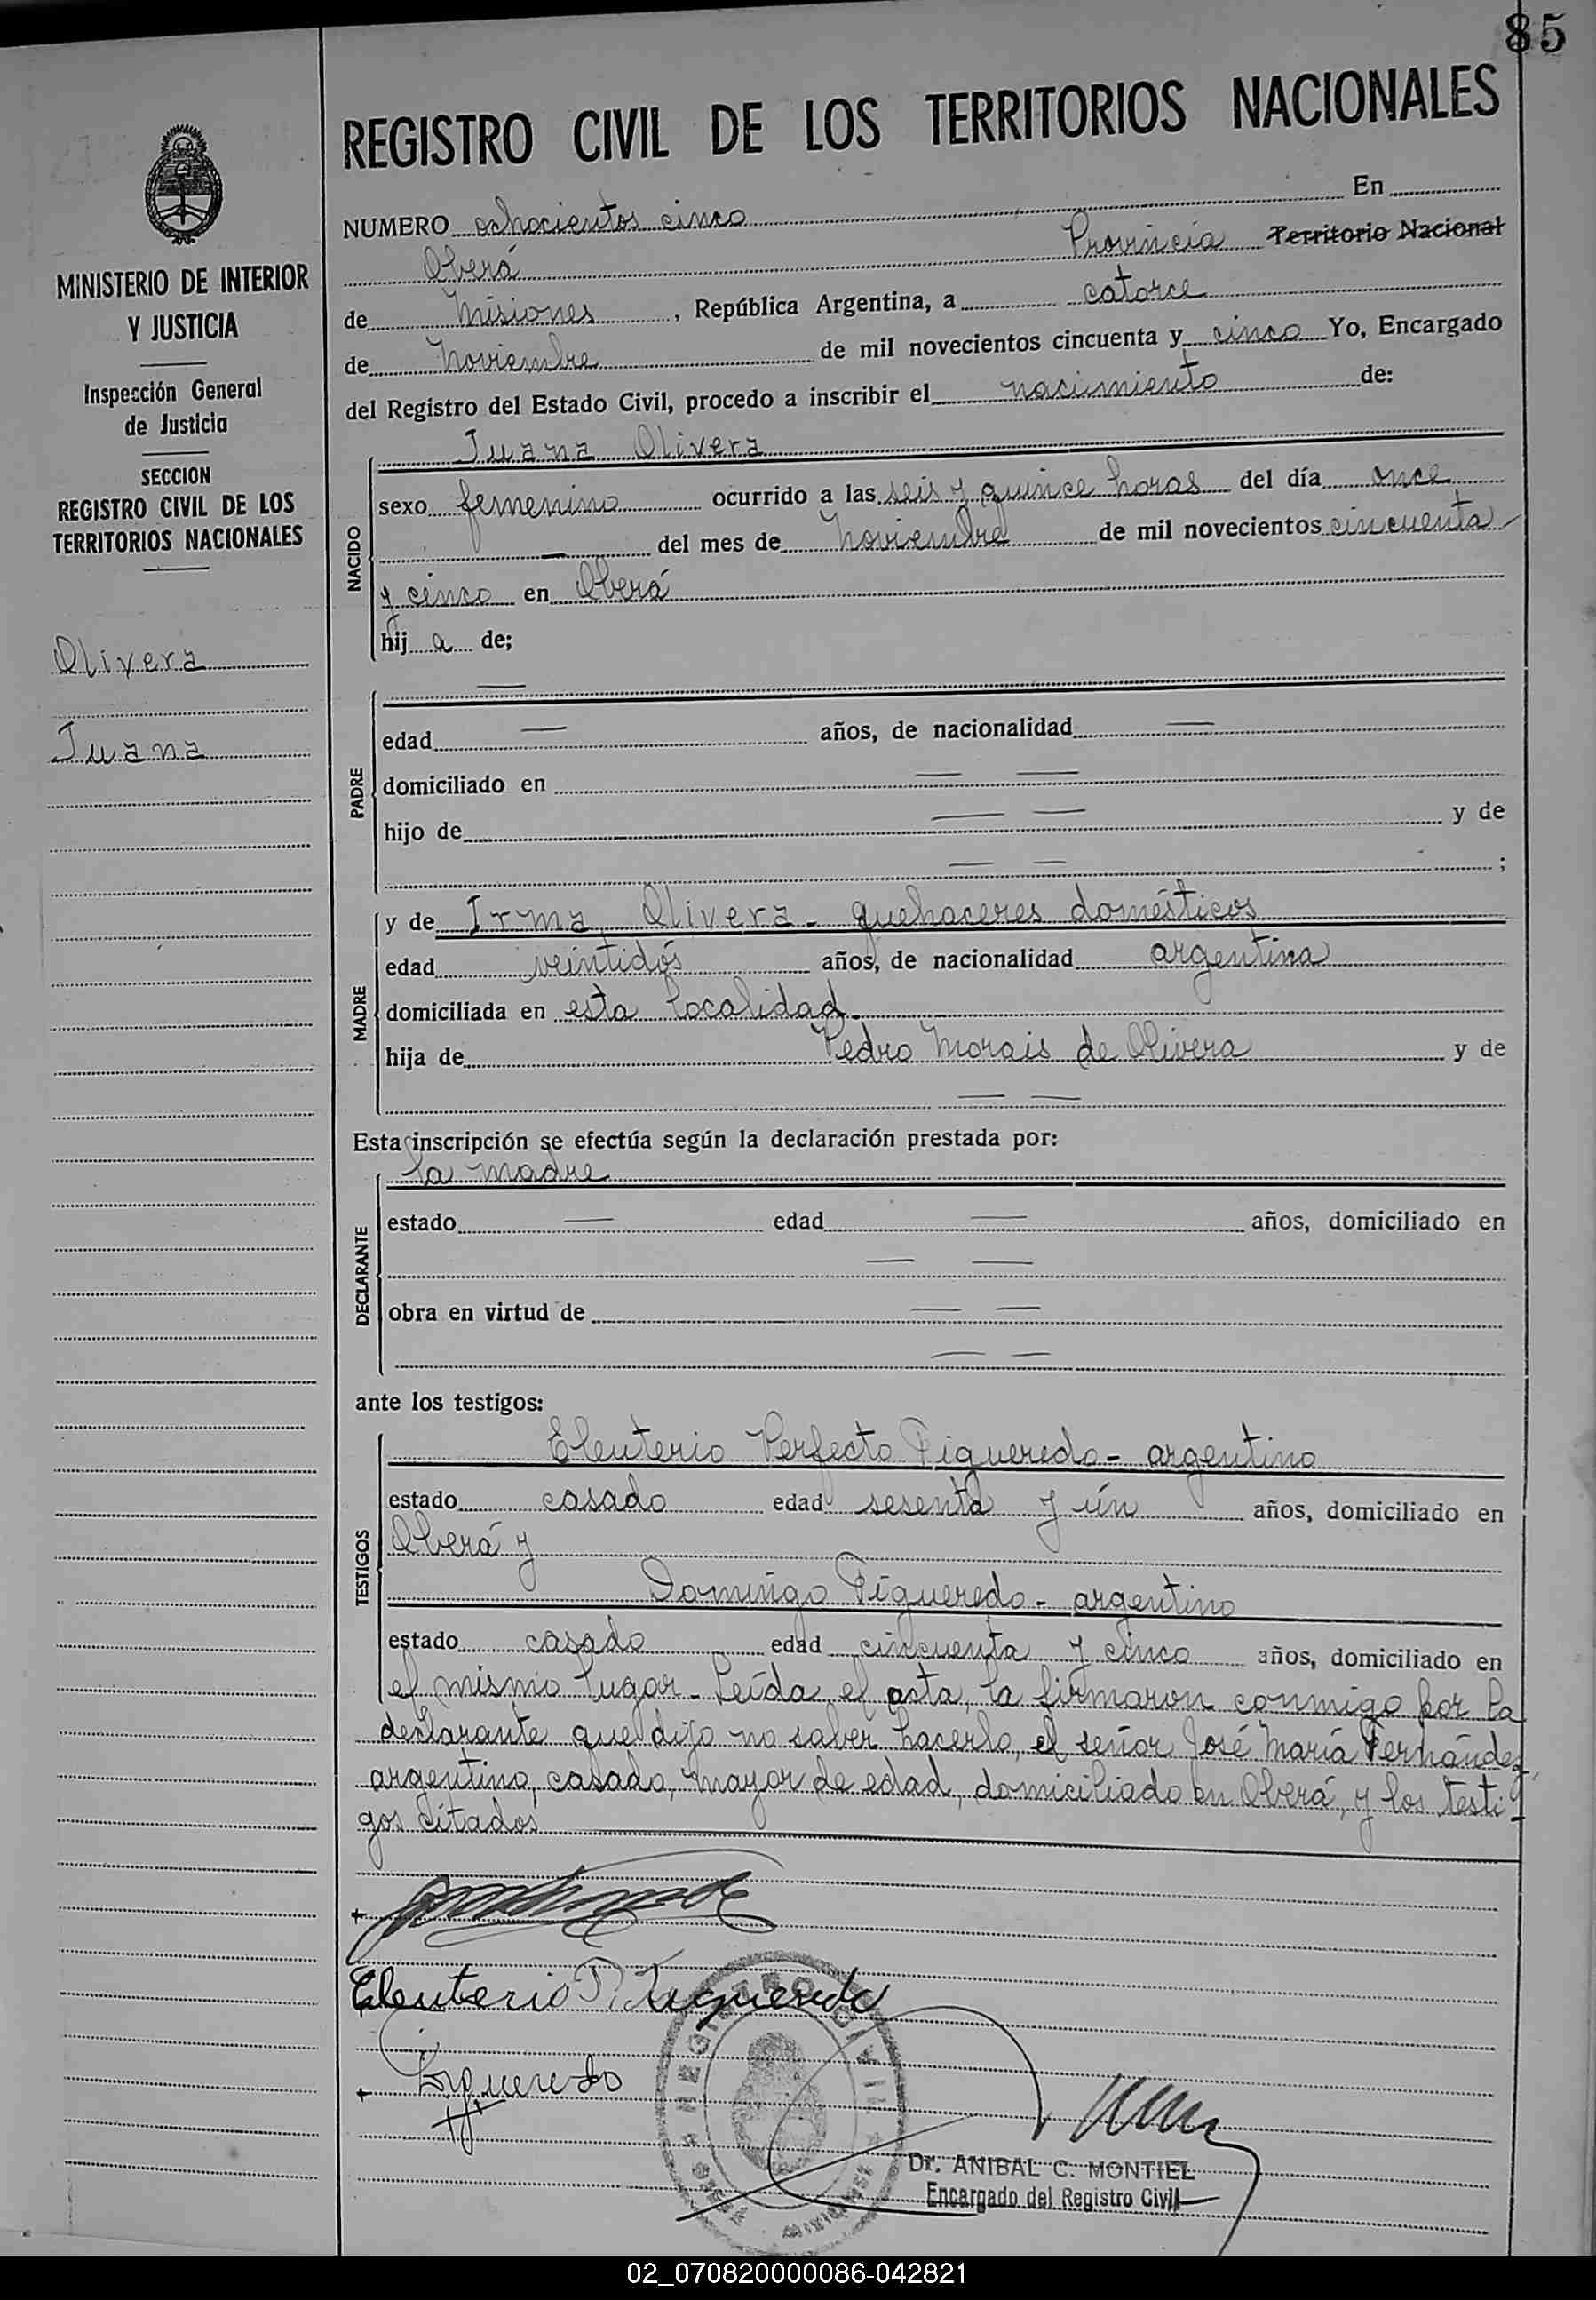 85
REGISTRO CIVIL DE LOS TERRITORIOS NACIONALES
MINISTERIO DE INTERIOR
Y JUSTICIA
Inspección General
de Justicia
SECCION
REGISTRO CIVIL DE LOS
TERRITORIOS NACIONALES
Olivera
Juana
NUMERO ochocientos cinco En
Oberá Provincia Territorio Nacional
de Misiones, República Argentina, a catorce
de Noviembre de mil novecientos cincuenta y cinco Yo, Encargado
del Registro del Estado Civil, procedo a inscribir el nacimiento de:
NACIDO
Juana Olivera
sexo femenino ocurrido a las seis y quince horas del día once
— del mes de Noviembre de mil novecientos cincuenta
y cinco en Oberá
hij a de;
PADRE
—
edad — años, de nacionalidad —
domiciliado en — —
hijo de — — y de
— — ;
MADRE
y de Irma Olivera - quehaceres domésticos
edad veintidós años, de nacionalidad argentina
domiciliada en esta localidad.
hija de Pedro Morais de Olivera y de
— —
Esta inscripción se efectúa según la declaración prestada por:
DECLARANTE
la madre
estado — edad — años, domiciliado en
— —
obra en virtud de — —
— —
ante los testigos:
TESTIGOS
Eleuterio Perfecto Figueredo - argentino
estado casado edad sesenta y ún años, domiciliado en
Oberá y
Domingo Figueredo - argentino
estado casado edad cincuenta y cinco años, domiciliado en
el mismo lugar - Leída el acta, la firmaron conmigo por la
declarante que dijo no saber hacerlo, el señor José María Fernández,
argentino, casado, mayor de edad, domiciliado en Oberá, y los testi-
gos citados
Eleuterio P. Figueredo
Figueredo
REGISTRO CIVIL
OBERÁ MISIONES
Dr. ANIBAL C. MONTIEL
Encargado del Registro Civil
02_070820000086-042821